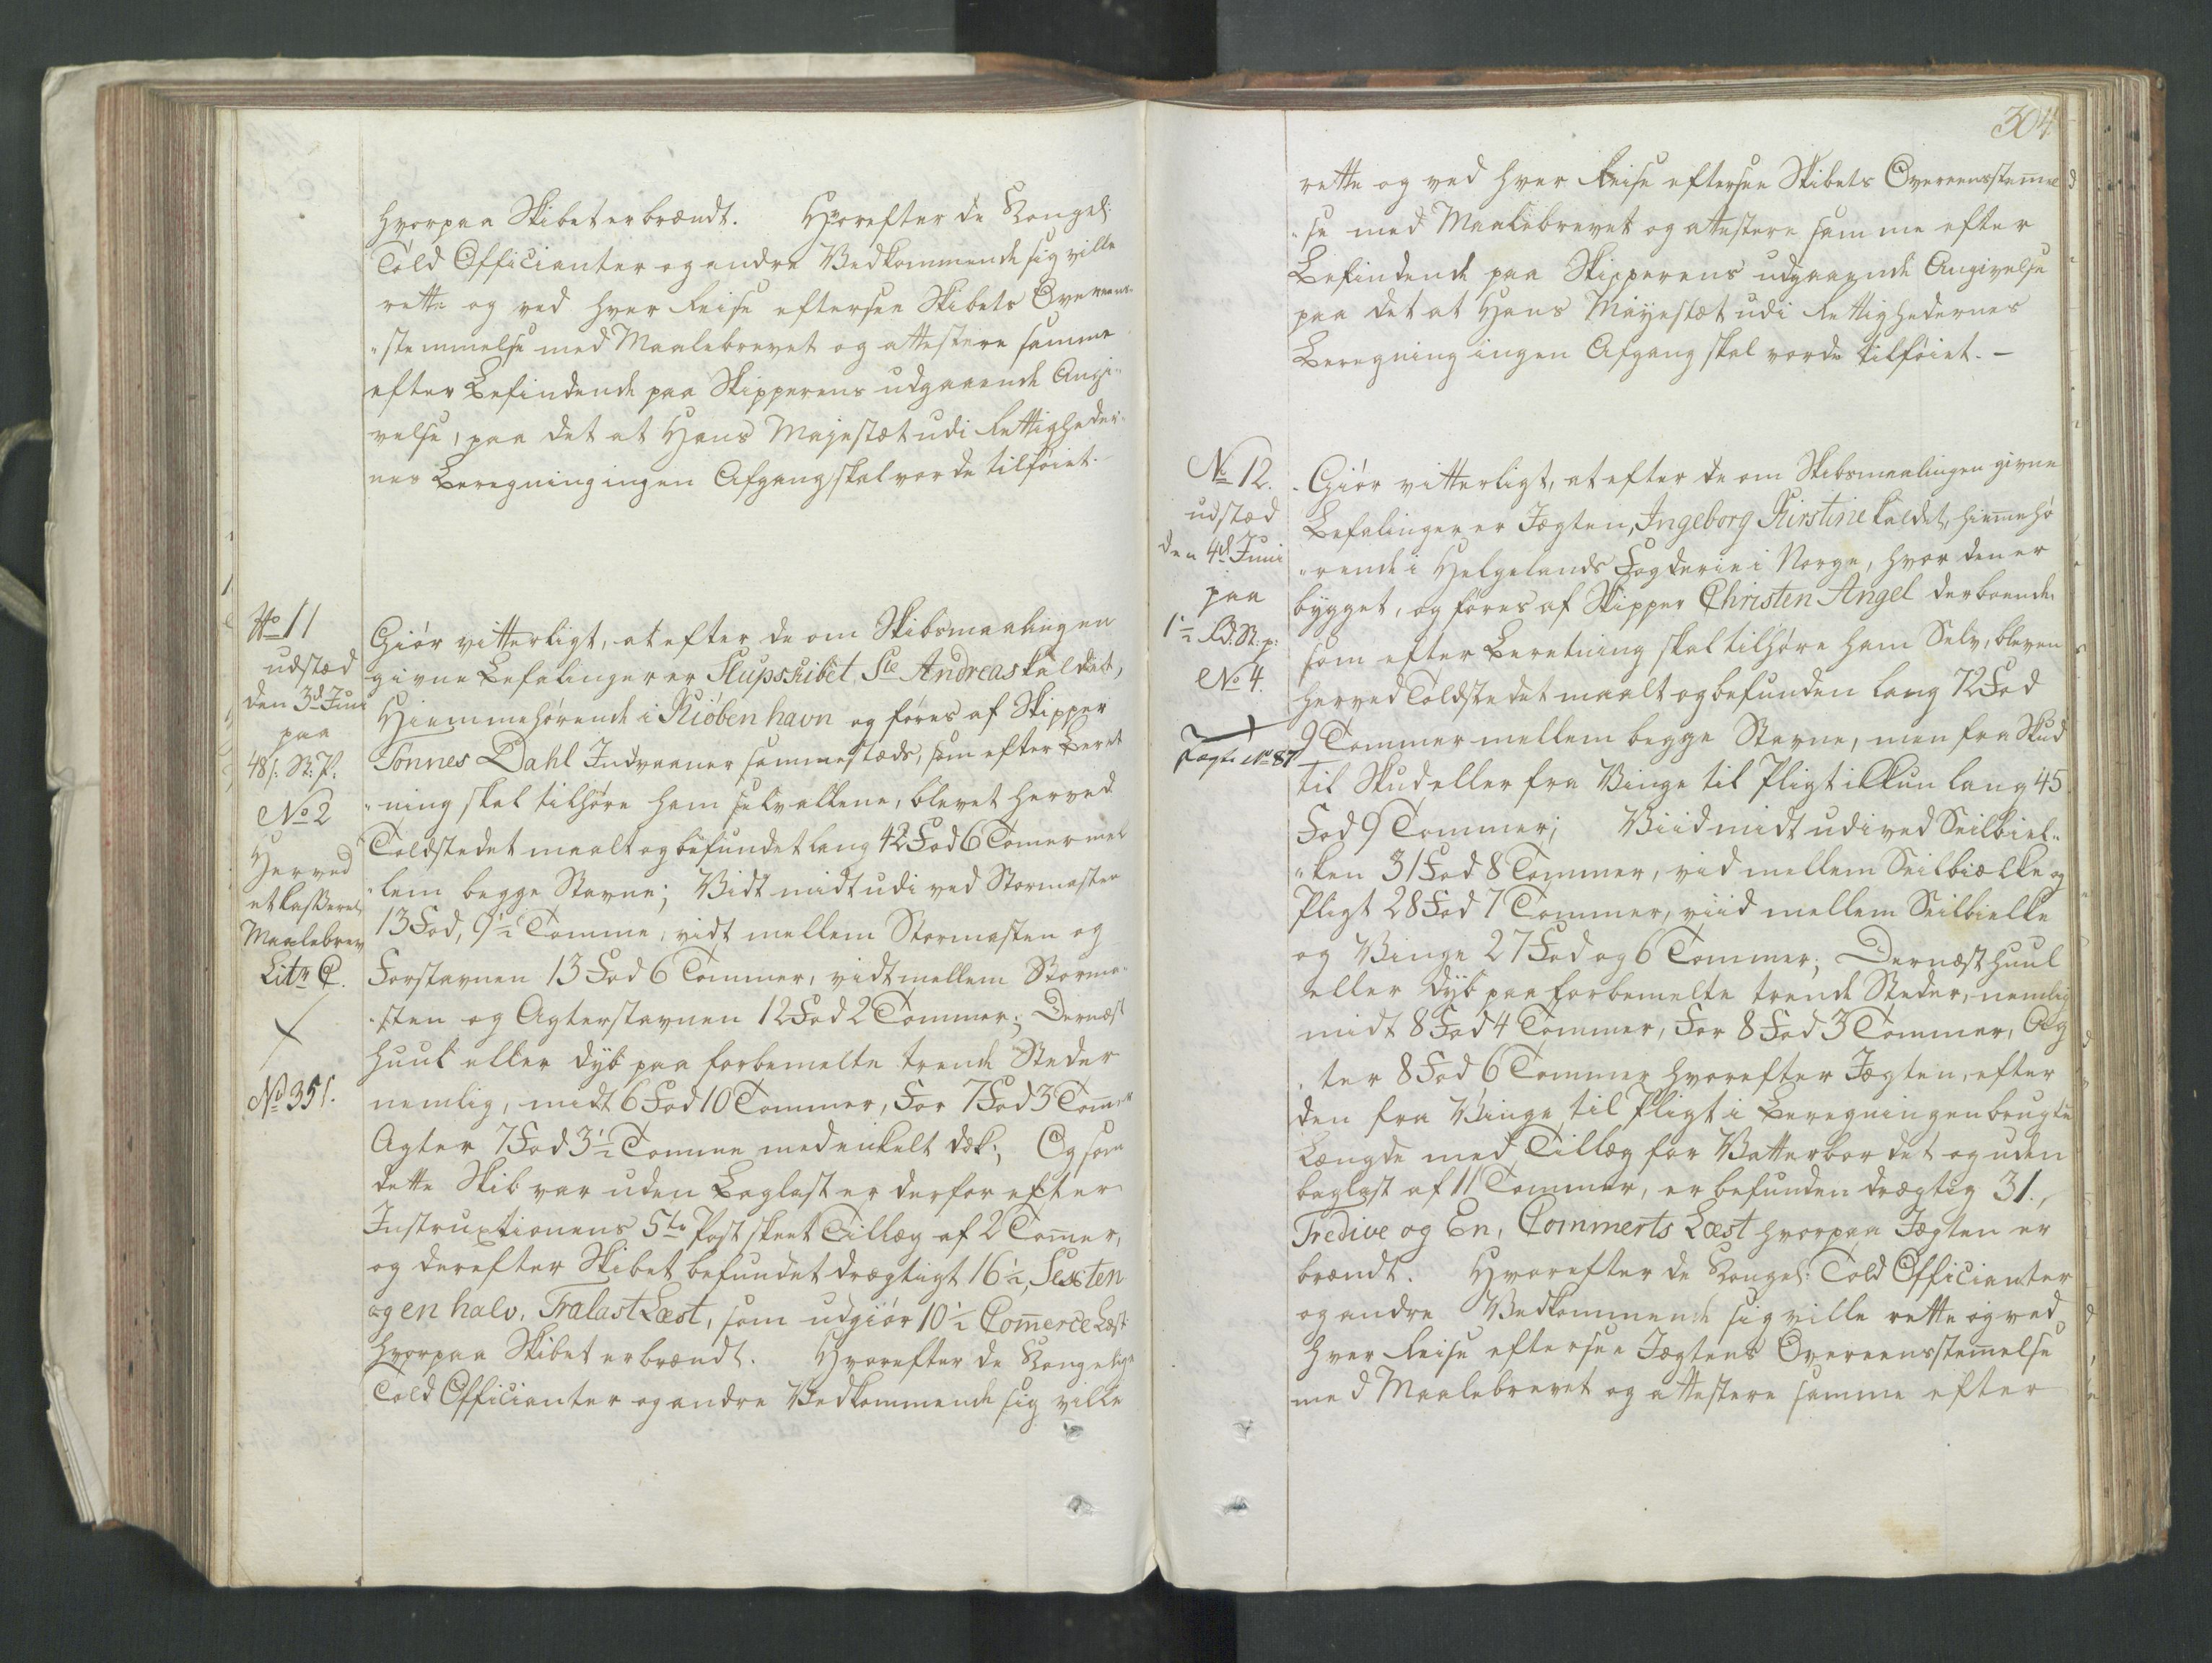 hvorpaa Skibet er brændt. Hvorefter de Kongel:
Told Officianter og andre Vedkommende sig ville
rette og ved hver Reise eftersee Skibets Overeens-
"stemmelse med Maalebrevet og attestere samme
efter Befindende paa Skipperens udgaaende Angi-
velse, paa det at Hans Majestæt udi Rettigheder-
nes Beregning ingen Afgang skal vorde tilføiet.
No 11
udstæd
den 3d Juni
paa
48 s. St: P.
No 2
Herved
et Casseret
Maalebrev
Litr C.
No 351.
Giór vitterligt, at efter de om Skibsmaalingen
givne Befalinger er Slupskibet Ste Andreas kaldet,
Hiemmehørende i Kiöbenhavn og føres af Skipper
Tönnes Dahl Indvaaner sammestæds, som efter Beret
"ning skal tilhøre ham selv allene, blevet herved
Toldstedet maalt og befundet lang 42 Fod 6 Tomer mel
"lem begge Stavne; Vidt midt udi ved Stormasten
13 Fod, 9½ Tomme, vidt mellem Stormasten og
Forstavnen 13 Fod 6 Tommer, vidt mellem Storma-
"sten og Agterstavnen 12 Fod 2 Tommer; Dernæst
Huul eller dyb paa forbemelte trende Steder
nemlig, midt 6 Fod 10 Tommer, For 7 Fod 3 Tommer
Agter 7 Fod 3½ Tomme med enkelt dæk; Og som
dette Skib var uden Baglast er derfor efter
Instruxtionens 5te Post skeet Tillæg af 2 Tomer,
og derefter Skibet befundet drægtigt 16½, Sexten
og en halv, Tralast Læst, som udgiør 10½ Comerce Læst
hvorpaa Skibet er brændt. Hvorefter de Kongelige
Told Officianter og andre Vedkommende sig ville
304
rette og ved hver Reise eftersee Skibets Overeensstemmel
"se med Maalebrevet og attestere samme efter
Befindende paa Skipperens udgaaende Angivelse
paa det at Hans Mayestæt udi Rettighedernes
Beregning ingen Afgang skal vorde tilføiet. –
No 12.
udstæd
den 4d Juni
paa
1½ Rd. St. p:
No 4.
Jagt No 87
Giór vitterligt, at efter de om Skibsmaalingen givne
Befalinger er Jægten, Ingeborg Kirstine kaldet, hiemehø
"rende i Helgelands Fogderie i Norge, hvor den er
bygget, og føres af Skipper Christen Angel derboende
som efter Beretning skal tilhøre ham Selv, bleven
herved Toldstedet maalt og befunden lang 72 Fod
9 Tommer mellem begge Stavne, men fra Skud
til Skud eller fra Binge til Pligt ikkun lang 45
Fod 9 Tommer; Viid midt udi ved Seilbiel-
"ken 31 Fod 8 Tommer, vid mellem Seilbiælke og
Pligt 28 Fod 7 Tommer, viid mellem Seilbielke
og Binge 27 Fod og 6 Tommer; Dernæst huul
eller dyb paa forbemelte trende Steder, nemlig
midt 8 Fod 4 Tommer, For 8 Fod 3 Tommer, Ag
"ter 8 Fod 6 Tommer hvorefter Jægten, efter
den fra Binge til Pligt i Beregningen brugte
Længde med Tillæg for Vatterbordet og uden
baglast af 11 Tommer, er befunden drægtig 31.,
Tredive og En, Commerts Læst hvorpaa Jægten er
brændt. Hvorefter de Kongel: Told Officianter
og andre Vedkommende sig ville rette og ved
hver Reise eftersee Jægtens Overeensstemelse
med Maalebrevet og attestere samme efter